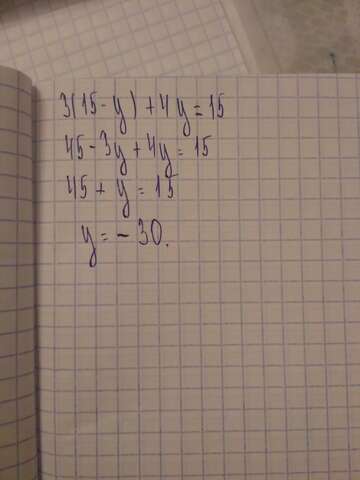 3(15-y)+4y=15
45-3y+4y=15
45+y=15
y=-30.